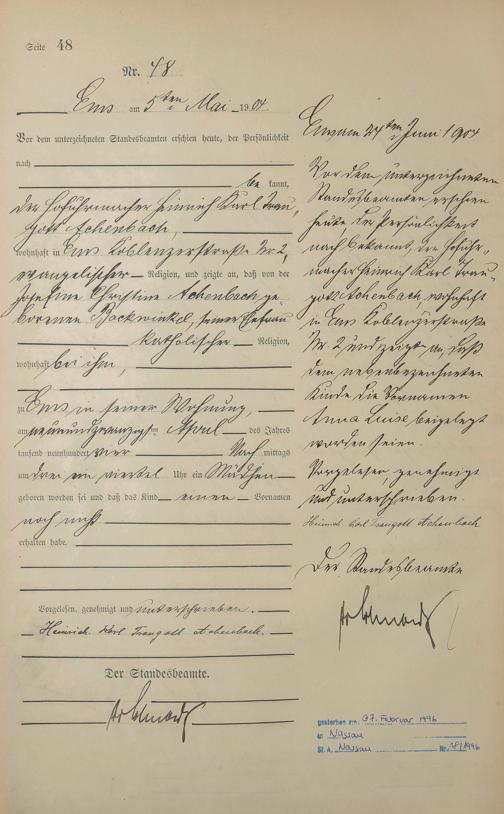 Seite 48
Nr. 48
Ems am 5ten Mai 1904.
Vor dem unterzeichneten Standesbeamten erschien heute, der Persönlichkeit
nach
be kannt,
der Heinrich Karl Trau-
gott Achenbach,
wohnhaft in Ems Koblenzerstraße Nr 2,
evangelischer Religion, und zeigte an, daß von der
Josefine Christine Achenbach ge-
borenen Bockwinkel, seiner Ehefrau
katholischer Religion,
wohnhaft bei ihm,
zu Ems in seiner Wohnung,
am neunundzwanzigsten April des Jahres
tausend neunhundert vier Nach mittags
um drei ein viertel Uhr ein Mädchen
geboren worden sei und daß das Kind einen Vornamen
noch nicht
erhalten habe.
Vorgelesen, genehmigt und unterschrieben.
Heinrich Karl Traugott Achenbach.
Der Standesbeamte.
Ems am 24ten Juni 1904
Vor dem unterzeichneten
Standesbeamten erschien
heute, der Persönlichkeit
nach bekannt, der
macher Heinrich Karl Trau-
gott Achenbach wohnhaft
in Ems Koblenzerstraße
Nr. 2 und zeigte an, daß
dem nebenbezeichneten
Kinde die Vornamen
Anna Luise beigelegt
worden seien.
Vorgelesen, genehmigt
und unterschrieben.
Heinrich Karl Traugott Achenbach
Der Standesbeamte
gestorben am: 07. Februar 1996
in Nassau
St. A. Nassau Nr. /1996